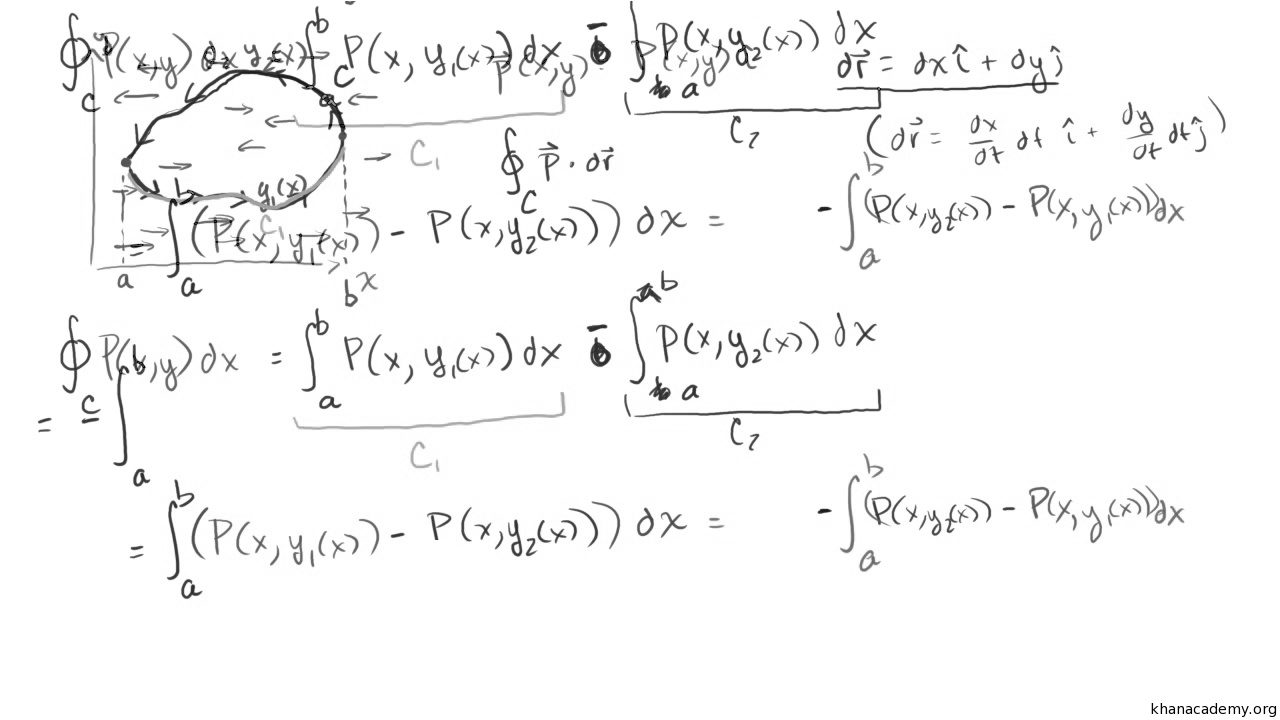 ∮_C P(x,y) dx y₂(x) ∫_a^b P(x, y₁(x)) dx - ∫_a P(x, y₂(x)) dx
P(x,y) P(x,y) dr⃗ = dx î + dy ĵ
C C
C₁ C₂
(dr⃗ = dx/dt dt î + dy/dt dt ĵ)
∮_C P⃗ · dr⃗
y₁(x)
C₁
= ∫_a^b (P(x, y₁(x)) - P(x, y₂(x))) dx = - ∫_a^b (P(x, y₂(x)) - P(x, y₁(x))) dx
a b x
∮_C P(x,y) dx = ∫_a^b P(x, y₁(x)) dx - ∫_a^b P(x, y₂(x)) dx
C₁ C₂
= ∫_a^b
= ∫_a^b (P(x, y₁(x)) - P(x, y₂(x))) dx = - ∫_a^b (P(x, y₂(x)) - P(x, y₁(x))) dx
khanacademy.org